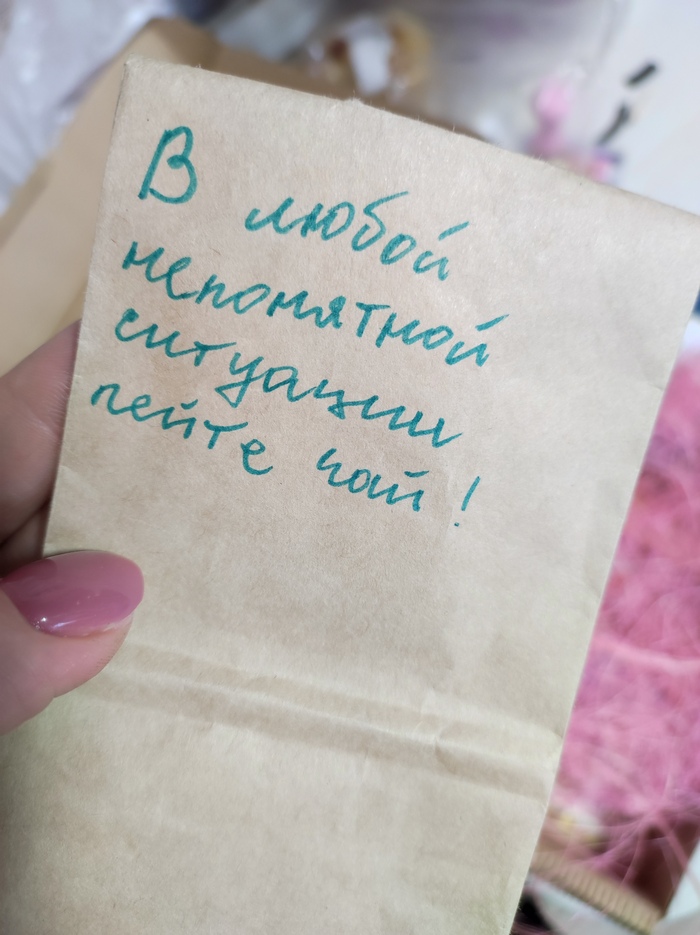 В любой
непонятной
ситуации
пейте чай!